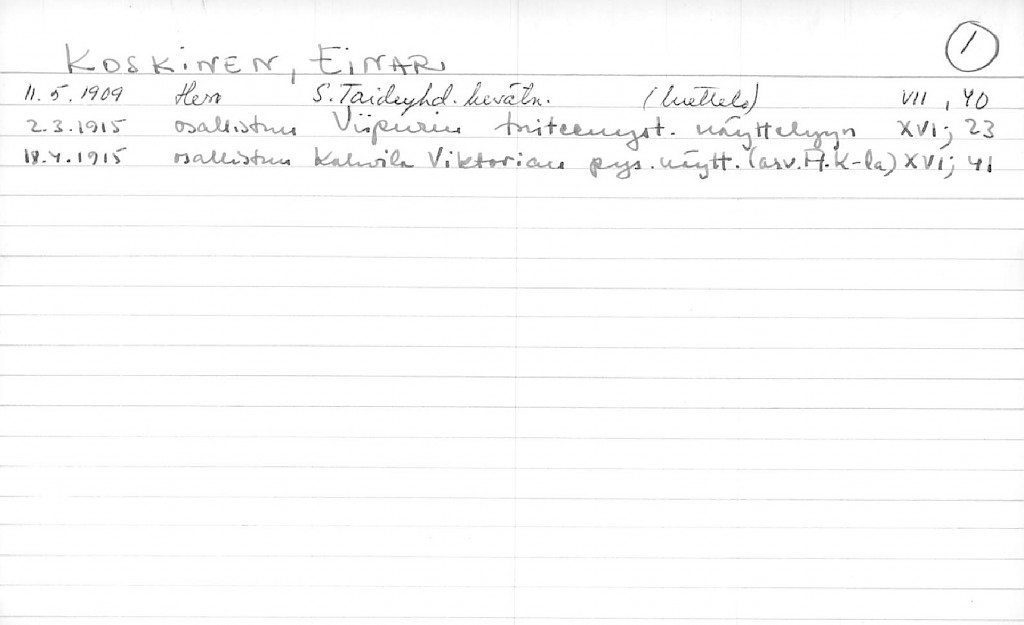 1
KOSKINEN, EINAR
11.5.1909 Hem S.Taideyhd. kevätn. (luettelo) VII, 40
2.3.1915 osallistuu Viipurin taiteenyst. näyttelyyn XVI; 23
18.4.1915 osallistuu Kahvila Viktorian pys. näytt. (arv. H.K-la) XVI; 41